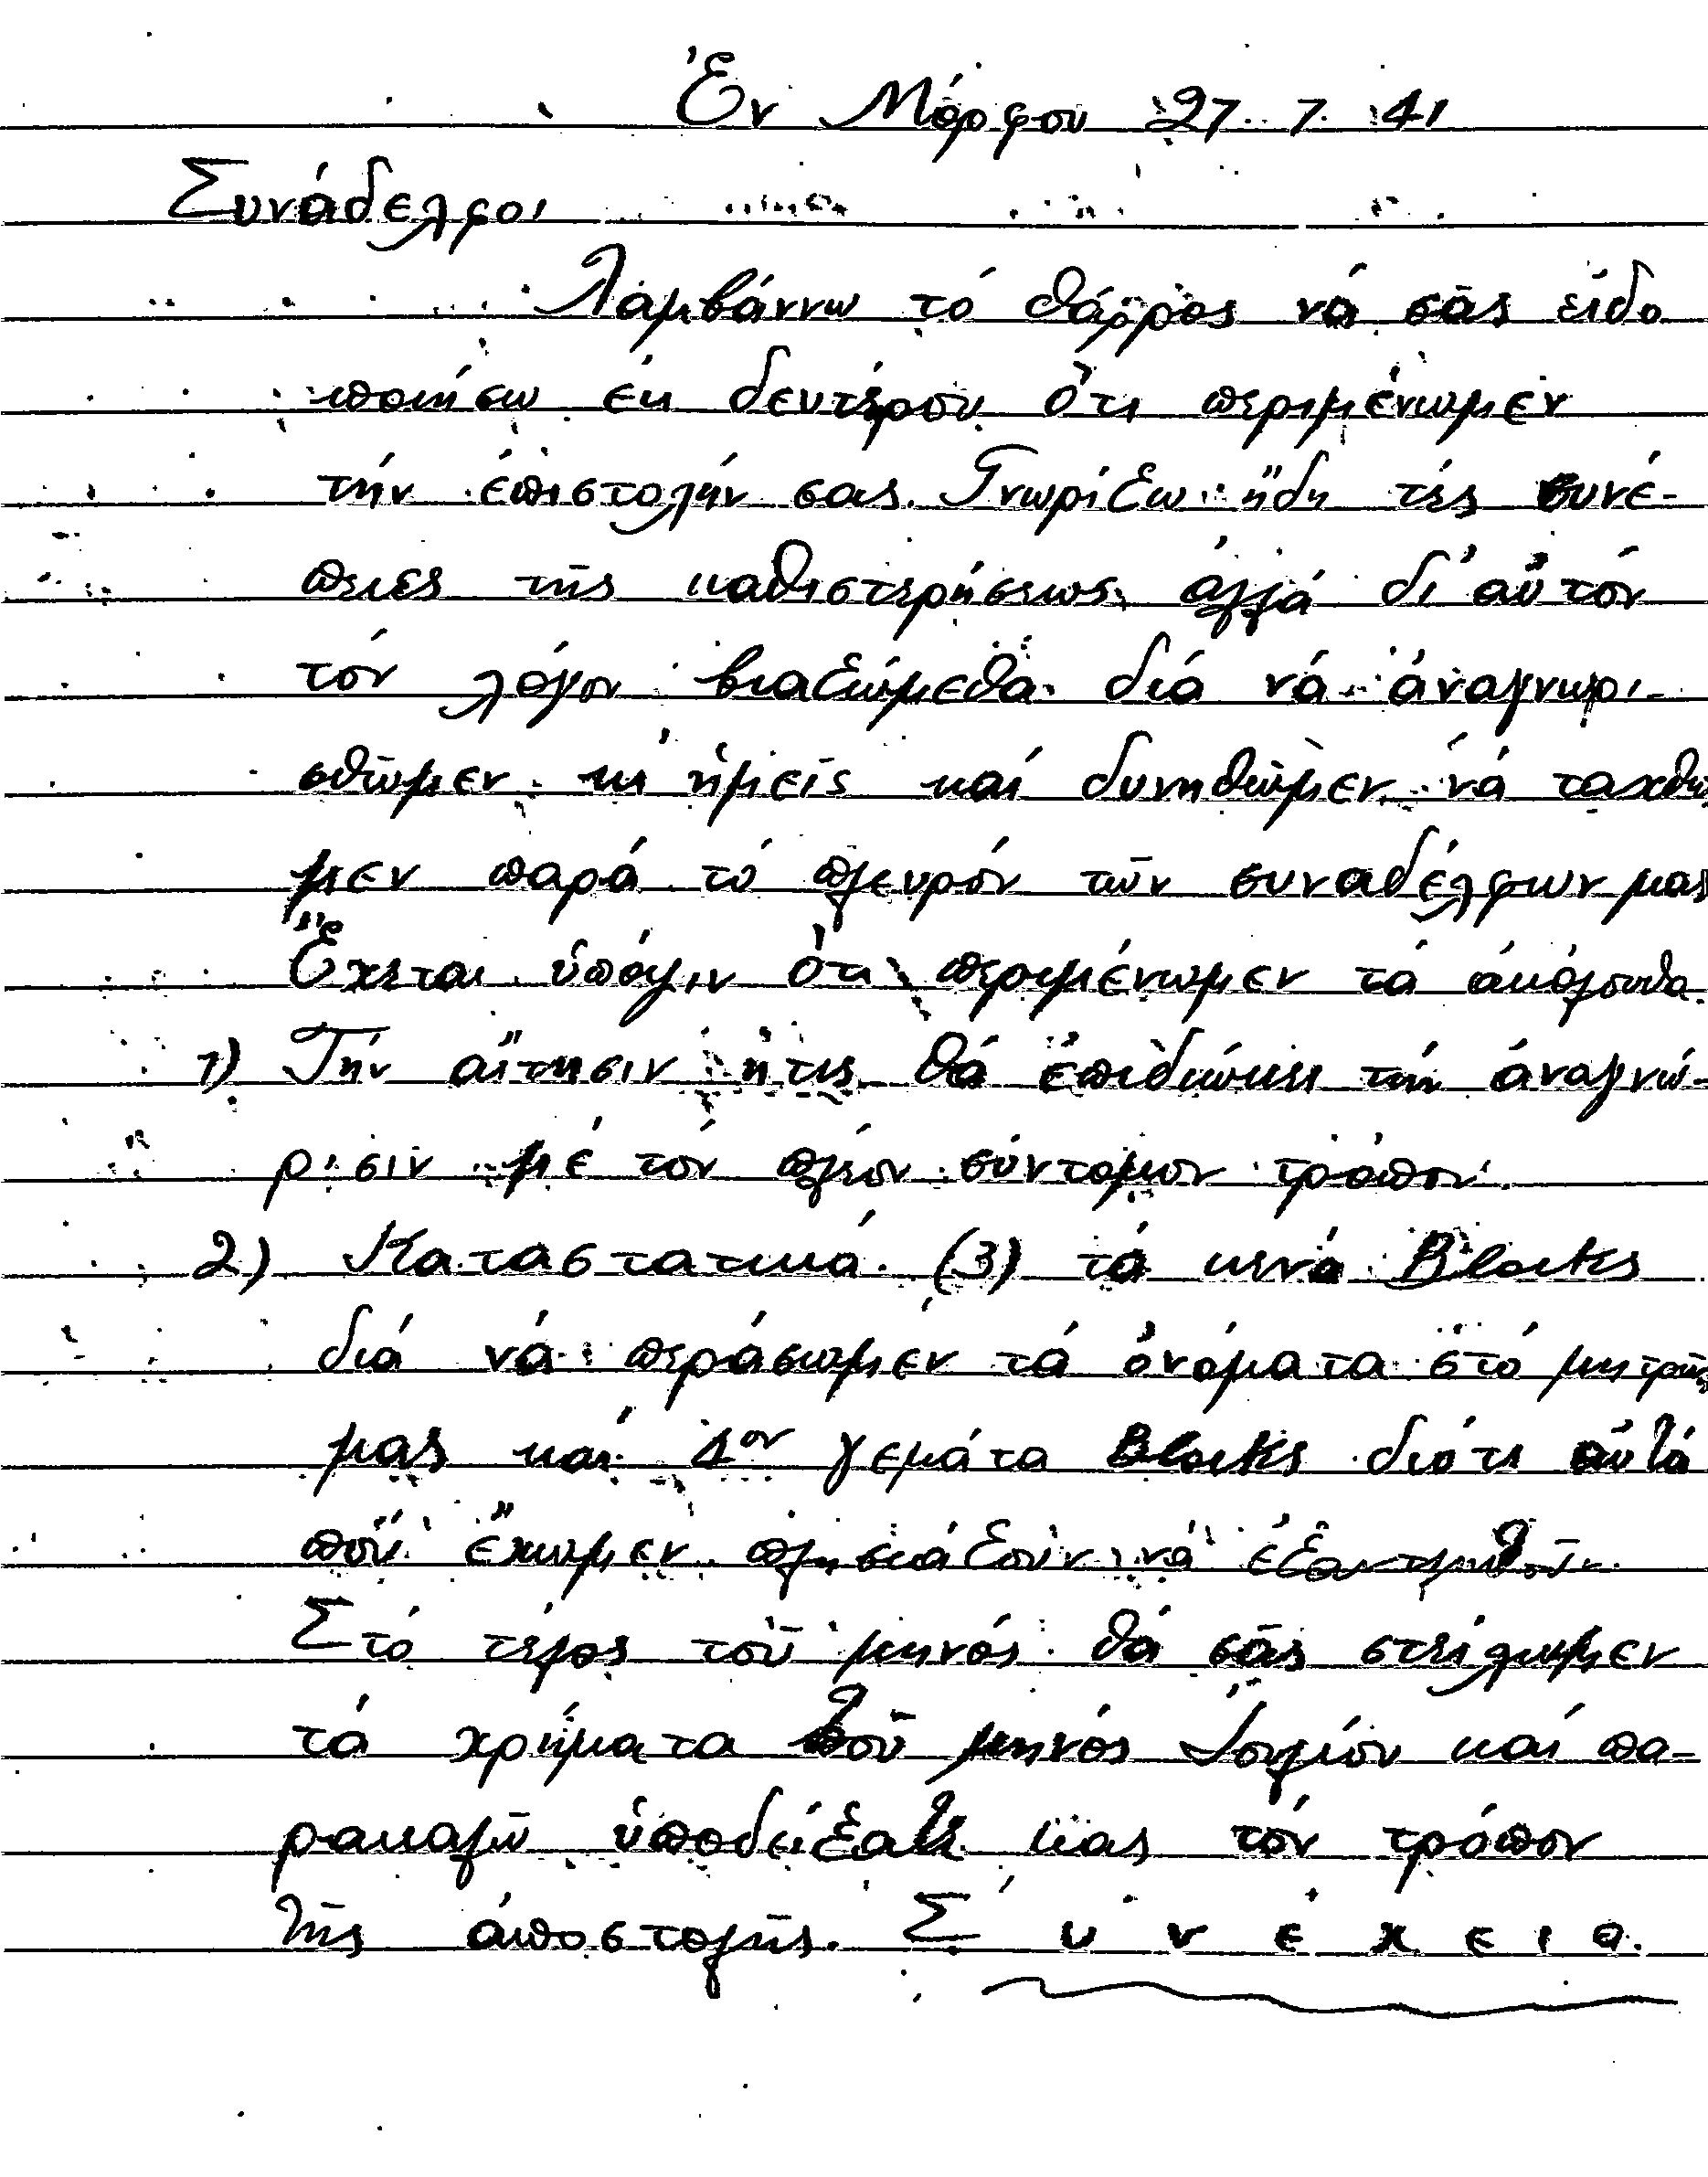 Ἐν Μόρφου 27. 7. 41
Συνάδελφοι
Λαμβάννω τό θάρρος νά σᾶς εἰδο
ποιήσω ἐκ δευτέρου ὅτι περιμένωμεν
τήν ἐπιστολήν σας. Γνωρίζω ἤδη τές συνέ-
πειες τῆς καθιστερήσεως, ἀλλά δι' αὐτόν
τόν λόγον βιαζώμεθα διά νά ἀναγνωρι-
σθῶμεν κι ἡμεῖς καί δυνηθῶμεν νά ταχθῶ
μεν παρά τό πλευρόν τῶν συναδέλφων μας
Ἔχεται ὑπόψιν ὅτι περιμένωμεν τά ἀκόλουθα.
1) Τήν αἴτησιν ἥτις θά ἐπιδιώκει τήν ἀναγνώ-
ρισιν μέ τόν πλέον σύντομον τρόπον.
2) Καταστατικά. (3) τά κενά Blocks
διά νά περάσωμεν τά ὀνόματα στό μητρῶο
μας καί 4ον γεμάτα Blocks διότι αὐτά
πού ἔχωμεν πλησιάζουν νά ἐξαντληθοῦν.
Στό τέλος τοῦ μηνός θά σᾶς στείλωμεν
τά χρήματα τοῦ μηνός Ἰουλίου καί πα-
ρακαλῶ ὑποδείξατε μας τόν τρόπον
τῆς ἀποστολῆς. Συνέχεια.